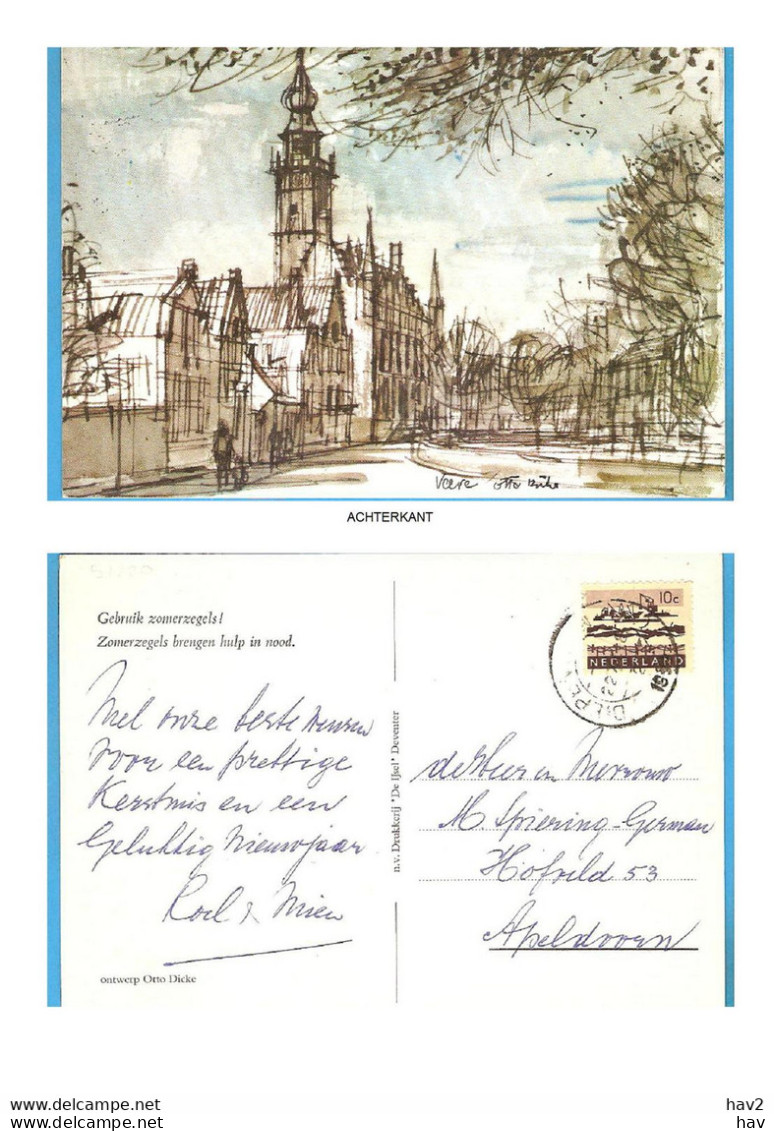 Veere Otto Dicke
ACHTERKANT
Gebruik zomerzegels!
Zomerzegels brengen hulp in nood.
10c
NEDERLAND
Met onze beste wensen
voor een prettige
Kerstmis en een
Gelukkig Nieuwjaar
Roel & Mien
ontwerp Otto Dicke
n.v. Drukkerij "De IJsel" Deventer
de Heer en Mevrouw
M. Spiering-German
Hofveld 53
Apeldoorn
hav2
hav